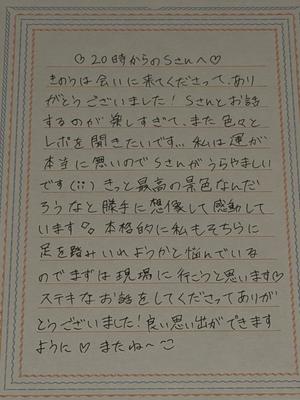 ♡ 20時からのSさんへ♡
きのうは会いに来てくださって、あり
がとうございました！Sさんとお話
するのが楽しすぎて、また色々と
レポを聞きたいです…私は運が
本当に悪いのでSさんがうらやましい
です(;;) きっと最高の景色なんだ
ろうなと勝手に想像して感動して
います。本格的に私もそちらに
足を踏みいれようかと悩んでいる
のでまずは現場に行こうと思います♡
ステキなお話をしてくださってありが
とうございました！良い思い出ができます
ように♡ またね〜